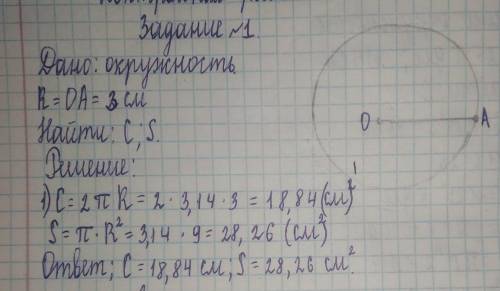 Задание №1.
Дано: окружность
R = OA = 3 см
Найти: C; S.
Решение:
1) C = 2πR = 2 · 3,14 · 3 = 18,84 (см)²
S = π · R² = 3,14 · 9 = 28,26 (см²)
Ответ; C = 18,84 см; S = 28,26 см².
O A